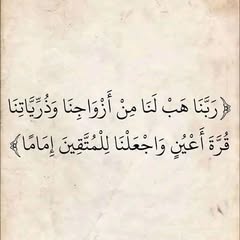 ﴿رَبَّنَا هَبْ لَنَا مِنْ أَزْوَاجِنَا وَذُرِّيَّاتِنَا
قُرَّةَ أَعْيُنٍ وَاجْعَلْنَا لِلْمُتَّقِينَ إِمَامًا﴾